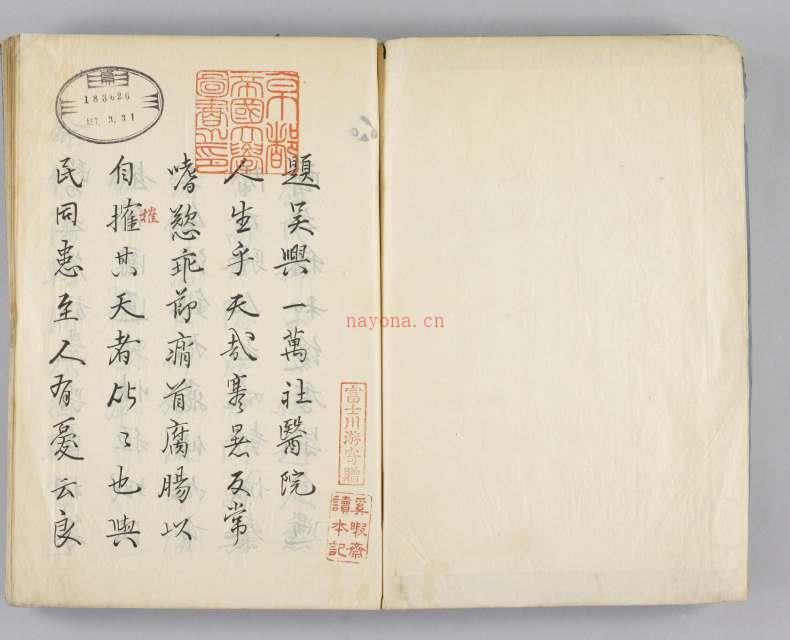 京都
帝國大學
圖書之印
183626
3.31
題吳興一萬社醫院
人生乎天哉寒暑反常
嗜慾乖節痟首腐腸以
自其天者比々也與
摧
民同患至人有憂云良
富士川游寄贈
奚暇齋
讀本記
nayona.cn